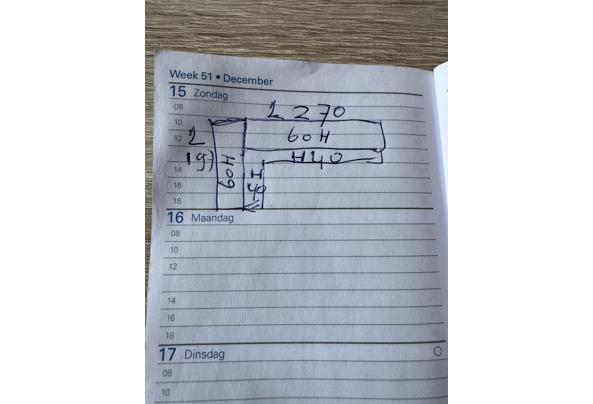 Week 51 • December
15 Zondag
L 270
08
10
60H
12
L
H40
19)
60H
14
H
16
40
18
16 Maandag
08
10
12
14
16
18
17 Dinsdag
08
10